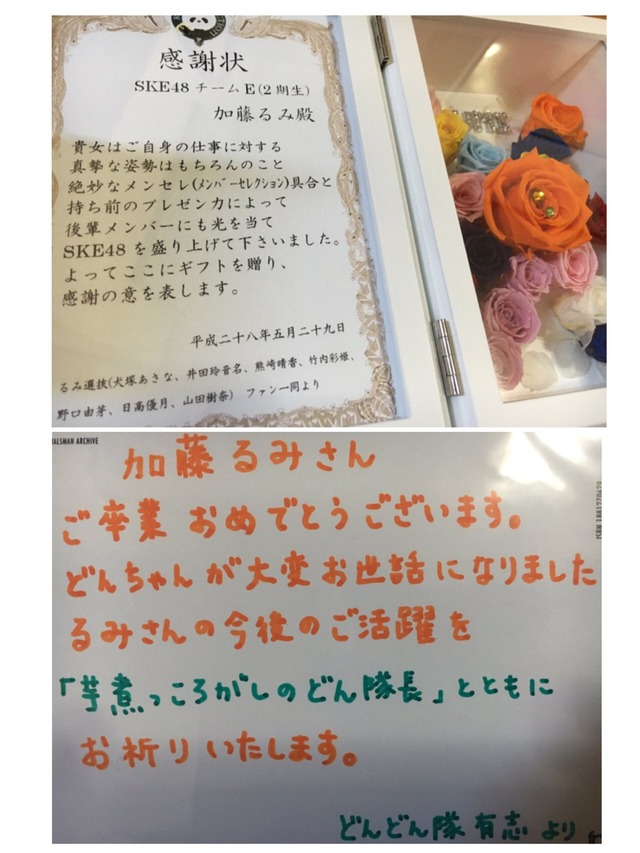 感謝状
SKE48 チームE(2期生)
加藤るみ殿
貴女はご自身の仕事に対する
真摯な姿勢はもちろんのこと
絶妙なメンセレ(メンバーセレクション)具合と
持ち前のプレゼン力によって
後輩メンバーにも光を当て
SKE48を盛り上げて下さいました。
よってここにギフトを贈り、
感謝の意を表します。
平成二十八年五月二十九日
るみ選抜(犬塚あさな、井田玲音名、熊崎晴香、竹内彩姫、
野口由芽、日高優月、山田樹奈) ファン一同より
ALSMAN ARCHIVE
加藤るみさん
ご卒業おめでとうございます。
どんちゃんが大変お世話になりました
るみさんの今後のご活躍を
「芋煮っころがしのどん隊長」とともに
お祈りいたします。
どんどん隊 有志 より